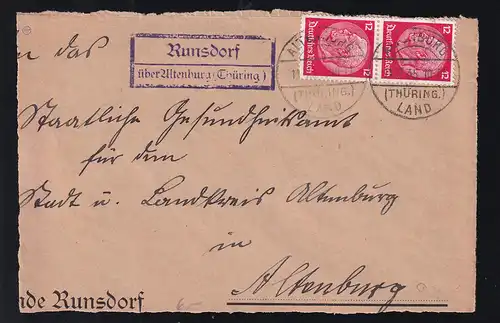 Runsdorf
über Altenburg (Thüring.)
12 12
Deutsches Reich Deutsches Reich
(THÜRING.) (THÜRING.)
LAND LAND
n das
Staatliche Gesundheitsamt
für den
Stadt u. Landkreis Altenburg
in
Altenburg
nde Runsdorf